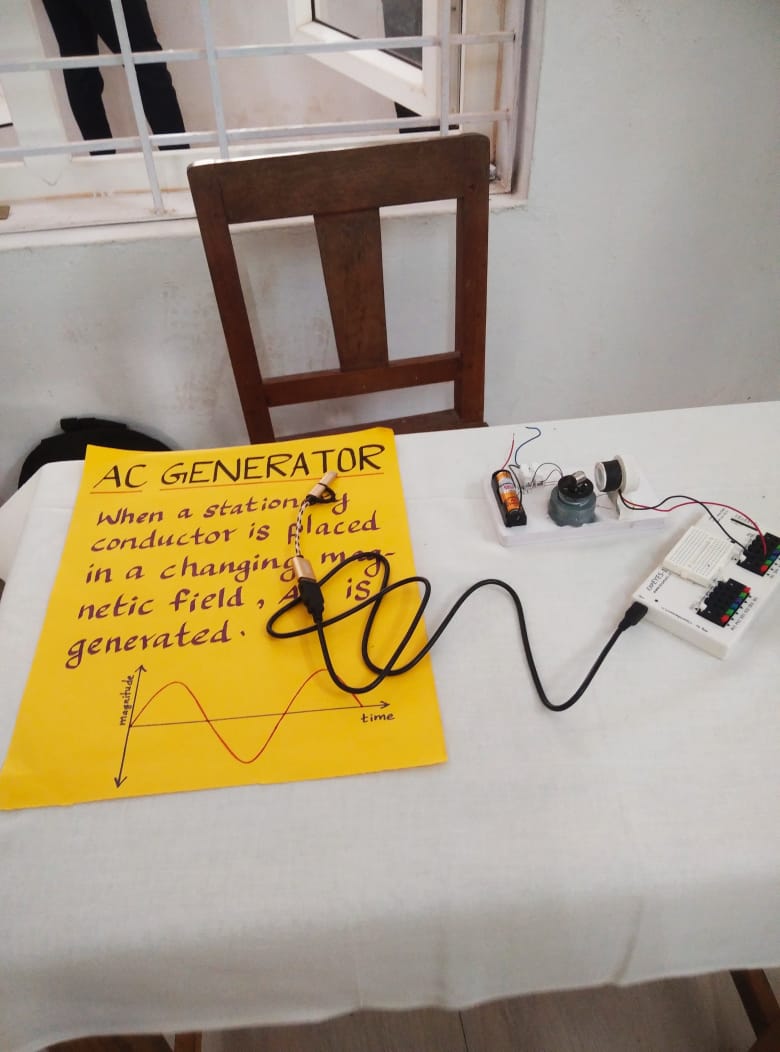 AC GENERATOR
When a stationary
conductor is placed
in a changing mag-
netic field, is
generated.
magnitude
time
EXPEYES-